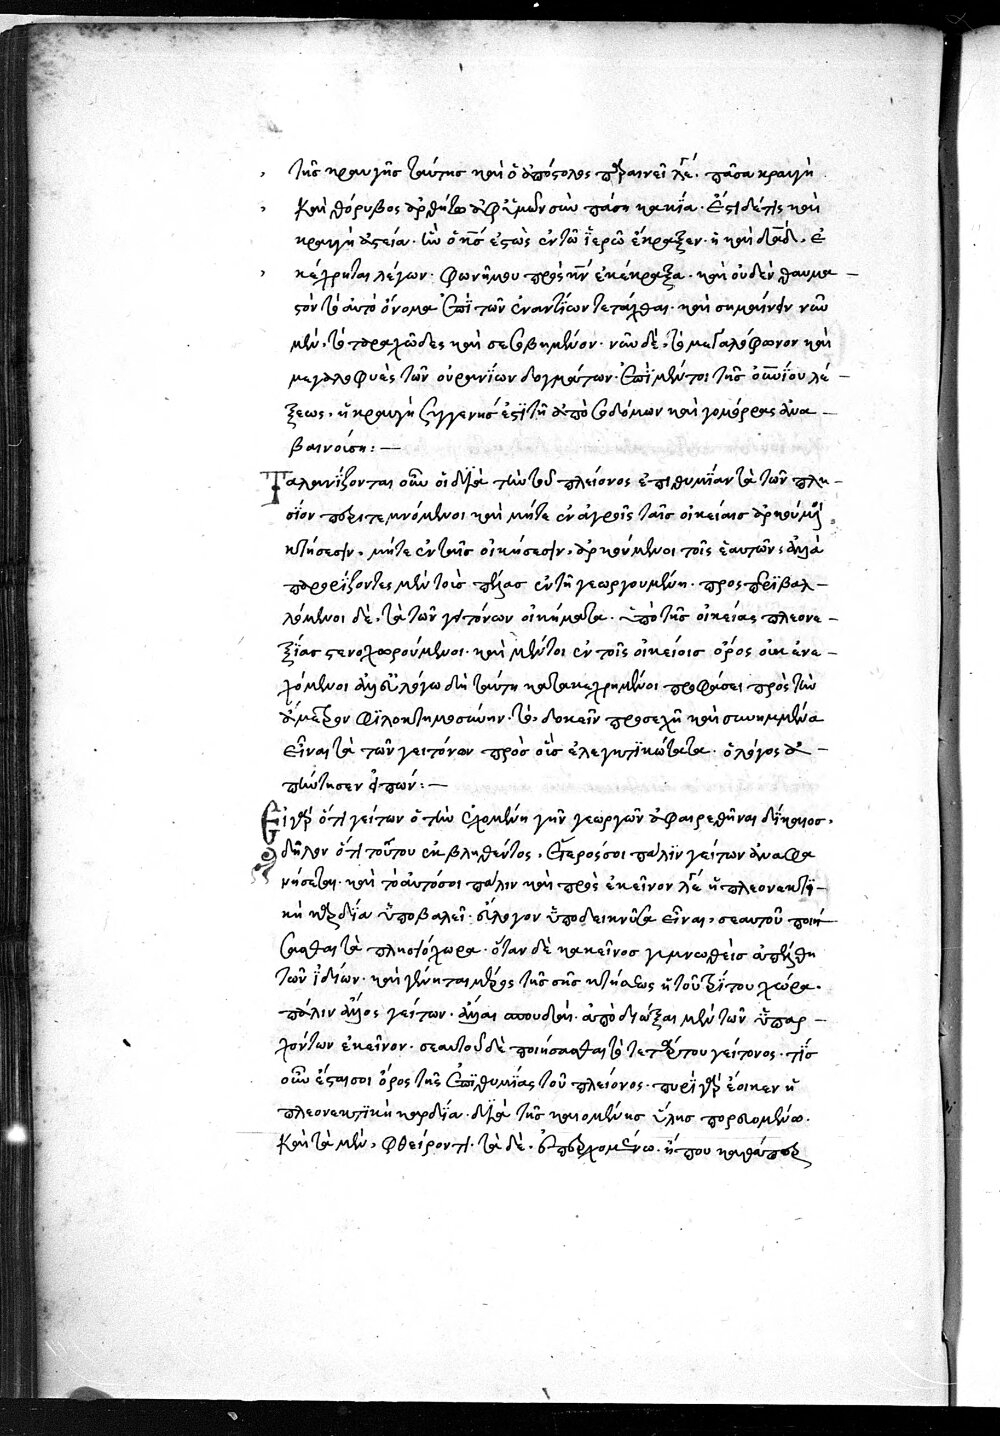 τῆς κραυγῆς ταύτης καὶ ὁ ἀπόστολος παραινεῖ λέγ· πᾶσα κραυγὴ
καὶ θόρυβος ἀρθήτω ἀφ' ὑμῶν σὺν πάσῃ κακίᾳ. ἔστι δέ τις καὶ
κραυγὴ ἀστεία. ἣν ὁ ἰς ἑστὼς ἐν τῶ ἱερῶ ἔκραξεν. ᾗ καὶ δαδ. ἐ
κέχρηται λέγων. φωνῇ μου πρὸς κν ἐκέκραξα. καὶ οὐδὲν θαυμα
στὸν τὸ αὐτὸ ὄνομα ἐπὶ τῶν ἐναντίων τετάχθαι. καὶ σημαίνειν νῦν
μὲν, τὸ τραχῶδες καὶ σεσοβημένον. νῦν δὲ, τὸ μεγαλόφωνον καὶ
μεγαλοφυὲς τῶν οὐρανίων δογμάτων. ἐπὶ μέντοι τῆς λέ
ξεως, ἡ κραυγὴ συγγενής ἐστι τῇ ἀπὸ σοδόμων καὶ γομόρρας ἀνα
βαινούσῃ:
Ταλανίζονται οὖν οἱ διὰ τὴν τοῦ πλείονος ἐπιθυμίαν τὰ τῶν πλη
σίον περιτεμνόμενοι καὶ μήτε ἐν ἀγροῖς ταῖς οἰκείαις ἀρκούμενοι
κτήσεσιν, μήτε ἐν ταῖς οἰκήσεσιν, ἀρκούμενοι τοῖς ἑαυτῶν, ἀλλὰ
παρορίζοντες μὲν τοὺς πέλας ἐν τῇ γεωργουμένῃ. προσπεριβαλ
λόμενοι δὲ, τὰ τῶν γειτόνων οἰκήματα. ὑπὸ τῆς οἰκείας πλεονε
ξίας στενοχωρούμενοι. καὶ μέντοι ἐν τοῖς οἰκείοις ὅροις οὐκ ἀνε
χόμενοι λόγω δὴ ταύτῃ κατακεχρημένοι προφάσει πρὸς τὴν
ἄμετρον φιλοκτημοσύνην. τὸ, δοκεῖν προσεχῆ καὶ συνημμένα
εἶναι τὰ τῶν γειτόνων πρὸς οὓς ἐλεγκτικώτατα. ὁ λόγος ἀ
πήντησεν εἰπών:
Εἰ γὰρ ὅτι γείτων ὁ τὴν ἐχομένην γῆν γεωργῶν ἀφαιρεθῆναι δίκαιος.
δῆλον ὅτι τούτου ἐκβληθέντος, ἕτερός σοι πάλιν γείτων ἀναφα
νήσεται. καὶ τὸ αὐτό σοι πάλιν καὶ πρὸς ἐκεῖνον λέγ ἡ πλεονεκτι
κὴ καρδία ὑποβαλεῖ. εὔλογον ὑποδεικνῦσα εἶναι, σεαυτοῦ ποιή
σασθαι τὰ πλησιόχωρα. ὅταν δὲ κἀκεῖνος γυμνωθεὶς ἀπέλθῃ
τῶν ἰδίων. καὶ γένηται μέρος τῆς σῆς κτήσεως ἡ τοῦ τρίτου χώρα.
πάλιν ἄλλος γείτων. ἄλλαι σπουδαὶ. ἀποδιῶξαι μὲν τῶν ὑπαρ
χόντων ἐκεῖνον. σεαυτοῦ δὲ ποιήσασθαι τὸ τετάρτου γείτονος. τίς
οὖν ἔσται σοι ὅρος τῆς ἐπιθυμίας τοῦ πλείονος. πυρὶ γὰρ ἔοικεν ἡ
πλεονεκτικὴ καρδία. διὰ τῆς καιομένης ὕλης πορευομένω.
καὶ τὰ μὲν, φθείροντι. τὰ δὲ, ἐπερχομένω. ἤπου καθάπερ